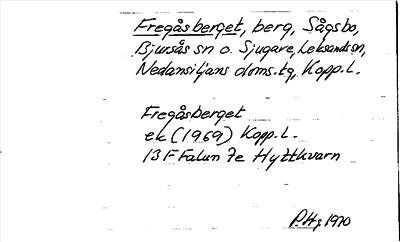 Fregåsberget, berg, Sågsbo,
Bjursås sn o. Sjugare, Leksands sn,
Nedansiljans doms.tg, Kopp.l.
Fregåsberget
ek (1969) Kopp.l.
13 F Falun 7e Hyttkvarn
P.Hg 1970